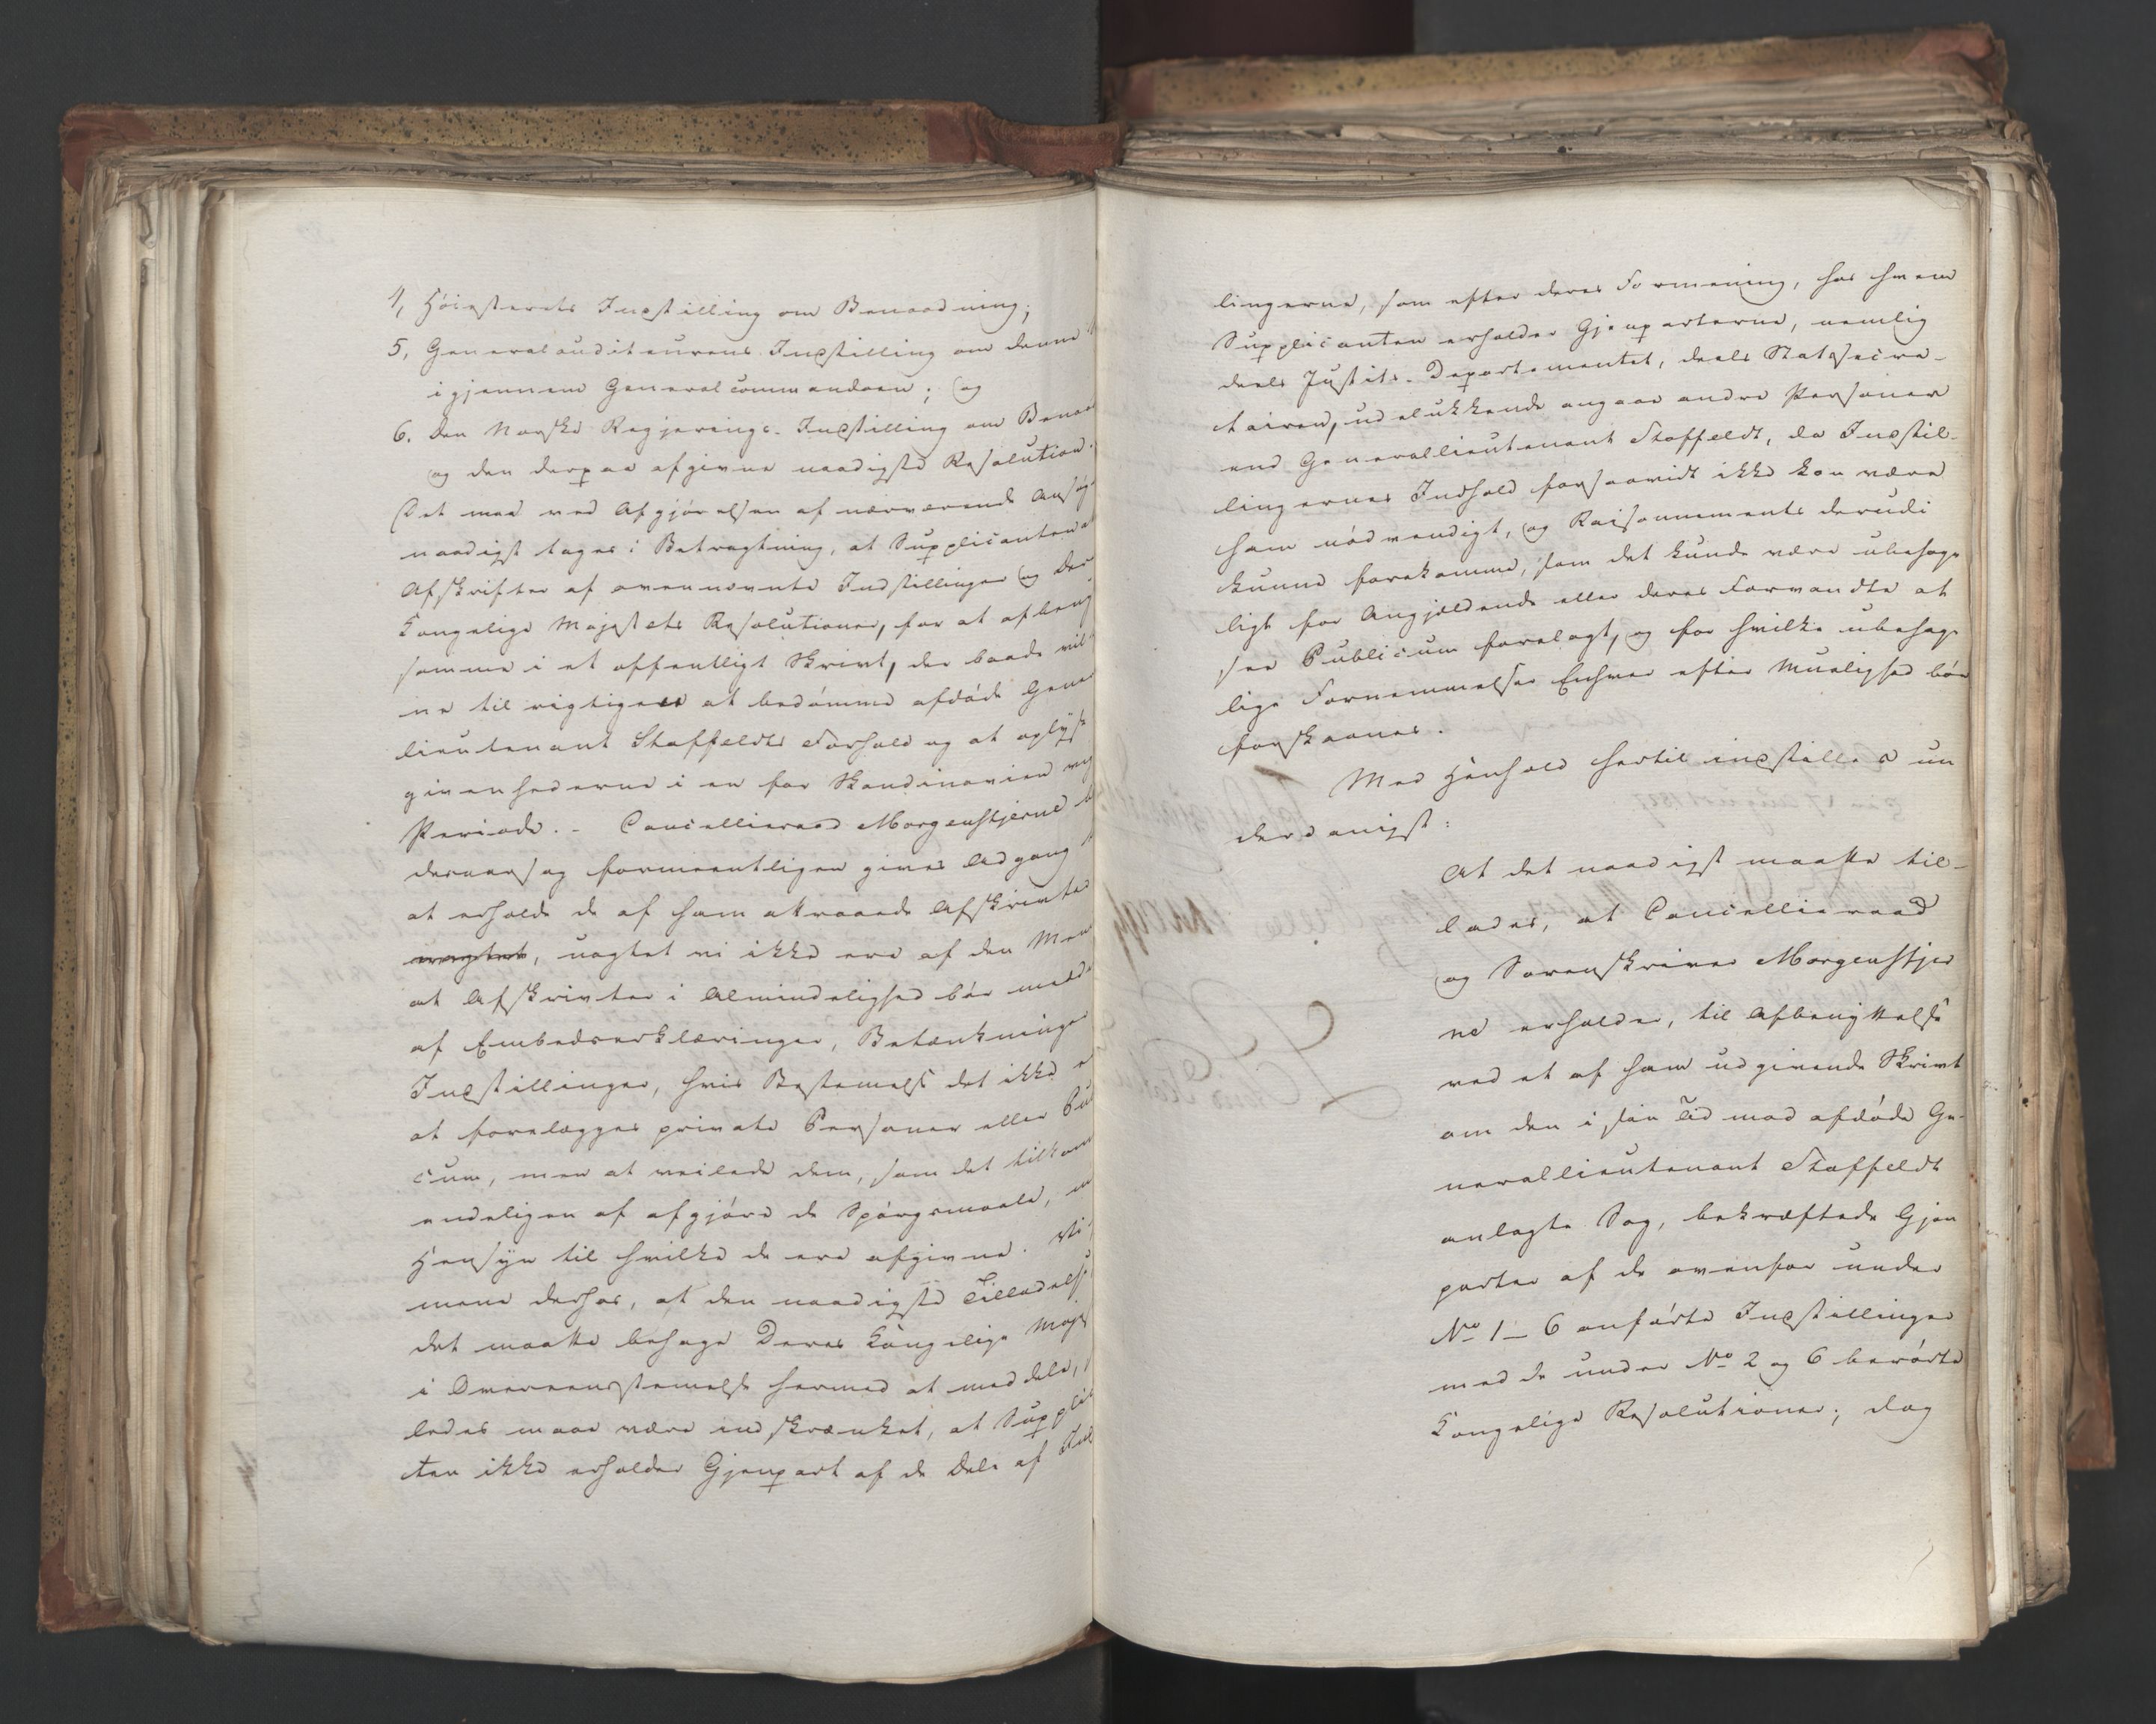 4, Höiesterets Indstilling om Benaadning;
5, Generalauditeurens Indstilling om denne
igjennem Generalcommandoen; og
6. den Norske Regjerings-Indstilling om Benaad
og den derpaa afgivne naadigste Resolution.
Det maa ved Afgjörelsen af nærværende Ansög
naadigst tages i Betragtning, at Supplicanten
Afskrifter af ovennævnte Indstillinger og Der
Kongelige Majestets Resolutioner, for at afbeny
samme i et offentligt Skrivt, der baade vil
ne til rigtigere at bedömme afdöde Gene
lieutenant Staffeldts Forhold og at oplyse
givenhederne i en for Skandinavien
Periode. - Cancellieraad Morgenstjerne
deraarsag formeentligen gives Adgang
at erholde de af ham attraaede Afskrivter
uagtet, uagtet vi ikke ere af den Men
at Afskrivter i Almindelighed bör medde
af Embedserklæringer, Betænkninger
Indstillinger, hvis Bestemelse det ikke
at forelægges private Personer eller Pu
cum, men at veilede dem, som det tilkom
endeligen af afgjöre de Spörgsmaale,
Hensyn til hvilke de ere afgivne. Vi
mene derhos, at den naadigste Tilladelse,
det maatte behage Deres Kongelige Maje
i Overeenstemelse hermed at meddele,
ledes maae være indskrænket, at Suppli
ten ikke erholder Gjenpart af de Dele af Ind
lingerne, som efter deres Formening, hos hvem
Supplicanten erholder Gjenparterne, nemlig
deels Justits-Departementet, deels Statssecre-
tairen, udelukkende angaae andre Personer
end Generallieutenant Staffeldt, da Indstil-
lingernes Indhold forsaavidt ikke kan være
ham nödvendigt, og Raisonnements derudi
kunne forekomme, som det kunde være ubehage
ligt for Angjeldende eller deres Forvandte at
see Publicum forelagt, og for hvilke ubehage
lige Fornemmelser Enhver efter Muelighed bör
forskaanes.
Med Henhold hertil indstilles un
derdanigst:
At det naadigst maatte til-
lades, at Cancellieraad
og Sorenskriver Morgenstjer
ne erholder, til Afbenyttelse
ved et af ham udgivende Skrivt
om den i sin Tid mod afdöde Ge-
nerallieutenant Staffeldt
anlagte Sag, bekræftede Gjen
parter af de ovenfor under
No 1-6 anförte Indstillinger
med de under No 2 og 6 berörte
Kongelige Resolutioner; dog